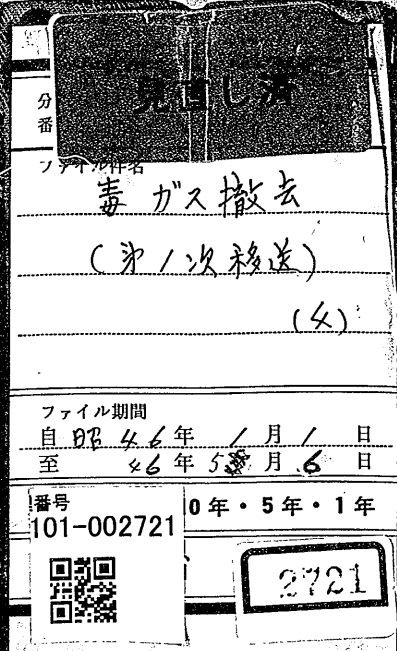 見直し済
分
番
ファイル件名
毒ガス撤去
(第1次移送)
(4)
ファイル期間
自 昭46年 1月 1日
至 46年 5月 6日
番号
101-002721
0年・5年・1年
2721